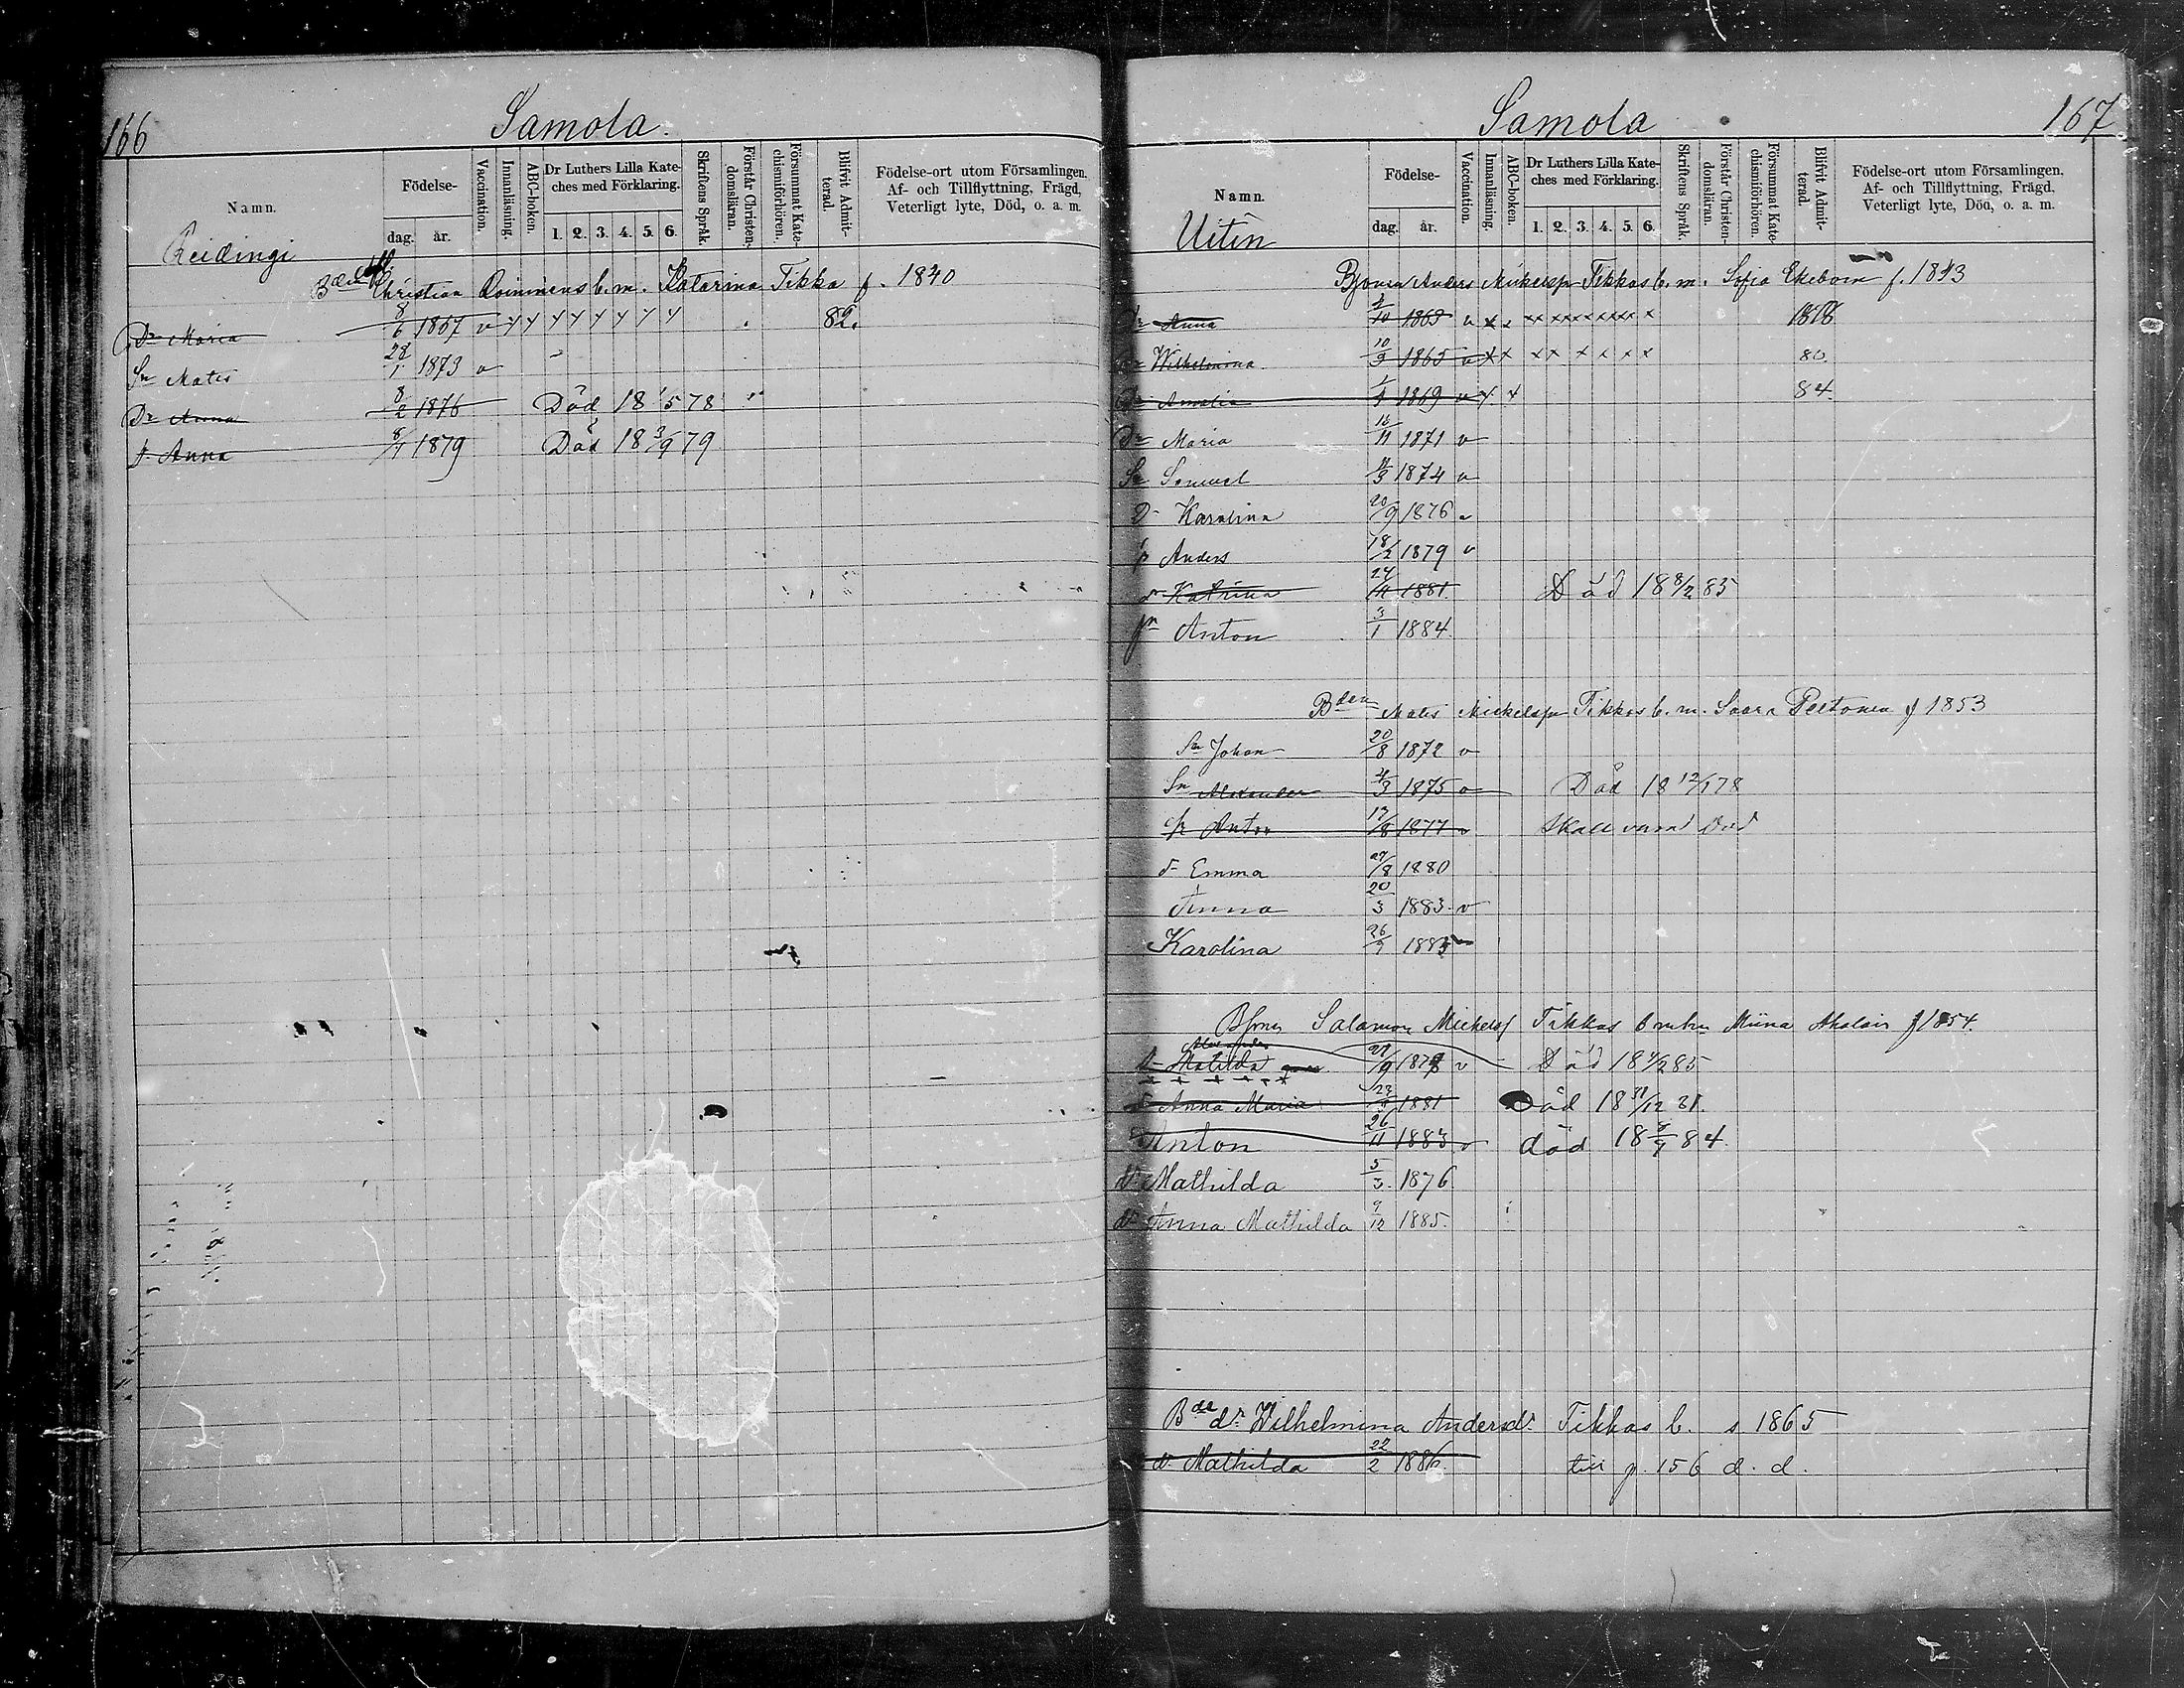 166
Samola.
Namn.
Födelse-
dag.
år.
Vaccination.
Innanläsning.
ABC-boken.
Dr Luthers Lilla Kate-
ches med Förklaring.
1. 2. 3. 4. 5. 6.
Skriftens Språk.
Förstår Christen-
domsläran.
Försummat Kate-
chismiförhören.
Blifvit Admit-
terad.
Födelse-ort utom Församlingen.
Af- och Tillflyttning, Frägd,
Veterligt lyte, Död, o. a. m.
Reidingi
Christian b. m. Katarina Tikka f. 1840
Dr Maria 8/6 1867 v 82.
Sn Mats 28/1 1873 v
Dr Anna 8/2 1876 Död 18 1/5 78
d. Anna 8/1 1879 Död 18 3/9 79
Samola
167
Namn.
Födelse-
dag.
år.
Vaccination.
Innanläsning.
ABC-boken.
Dr Luthers Lilla Kate-
ches med Förklaring.
1. 2. 3. 4. 5. 6.
Skriftens Språk.
Förstår Christen-
domsläran.
Försummat Kate-
chismiförhören.
Blifvit Admit-
terad.
Födelse-ort utom Församlingen.
Af- och Tillflyttning, Frägd,
Veterligt lyte, Död, o. a. m.
Uitin
Anders Tikkas b. m. Sofia Ekebom f. 1843
Dr Anna /10 1863 v x x x x x x x x 1878
Dr Wilhelmina 10/3 1865 v x x x x x x x x 80.
Dr Amalia 1869 v x x 84
Dr Maria 16/11 1871 v
Sn Samuel 1874 v
Dr Karolina 20/9 1876 v
Anders 18/2 1879 v
dr Katrina 24/11 1881. Död 18 8/2 85
Anton 3/1 1884
Bden Mats Mickelss Tikkas b. m. Saara Peltonen f 1853
Sn Johan 20/8 1872 v
Sn Alexander 4/3 1875 v Död 18 12/1 78
Anton 17/8 1877 v Skall vara Död
dr Emma 27/8 1880
Anna 20/3 1883. v
Karolina 26/9 1885 v
Salamon Mickelss Tikkas b Miina f 1854.
Alexander
Matilda 27/9 187 v Död 18 /2 85
Anna Maria 23/ 1881 Död 18 31/12 81.
Anton 26/11 1883 v död 18 84.
dr Mathilda 5/3. 1876
dr Anna Mathilda 9/12 1885.
Bde dr Wilhelmina Andersdr Tikkas b. s 1865
dr Mathilda 22/2 1886. till p. 156 d. d.